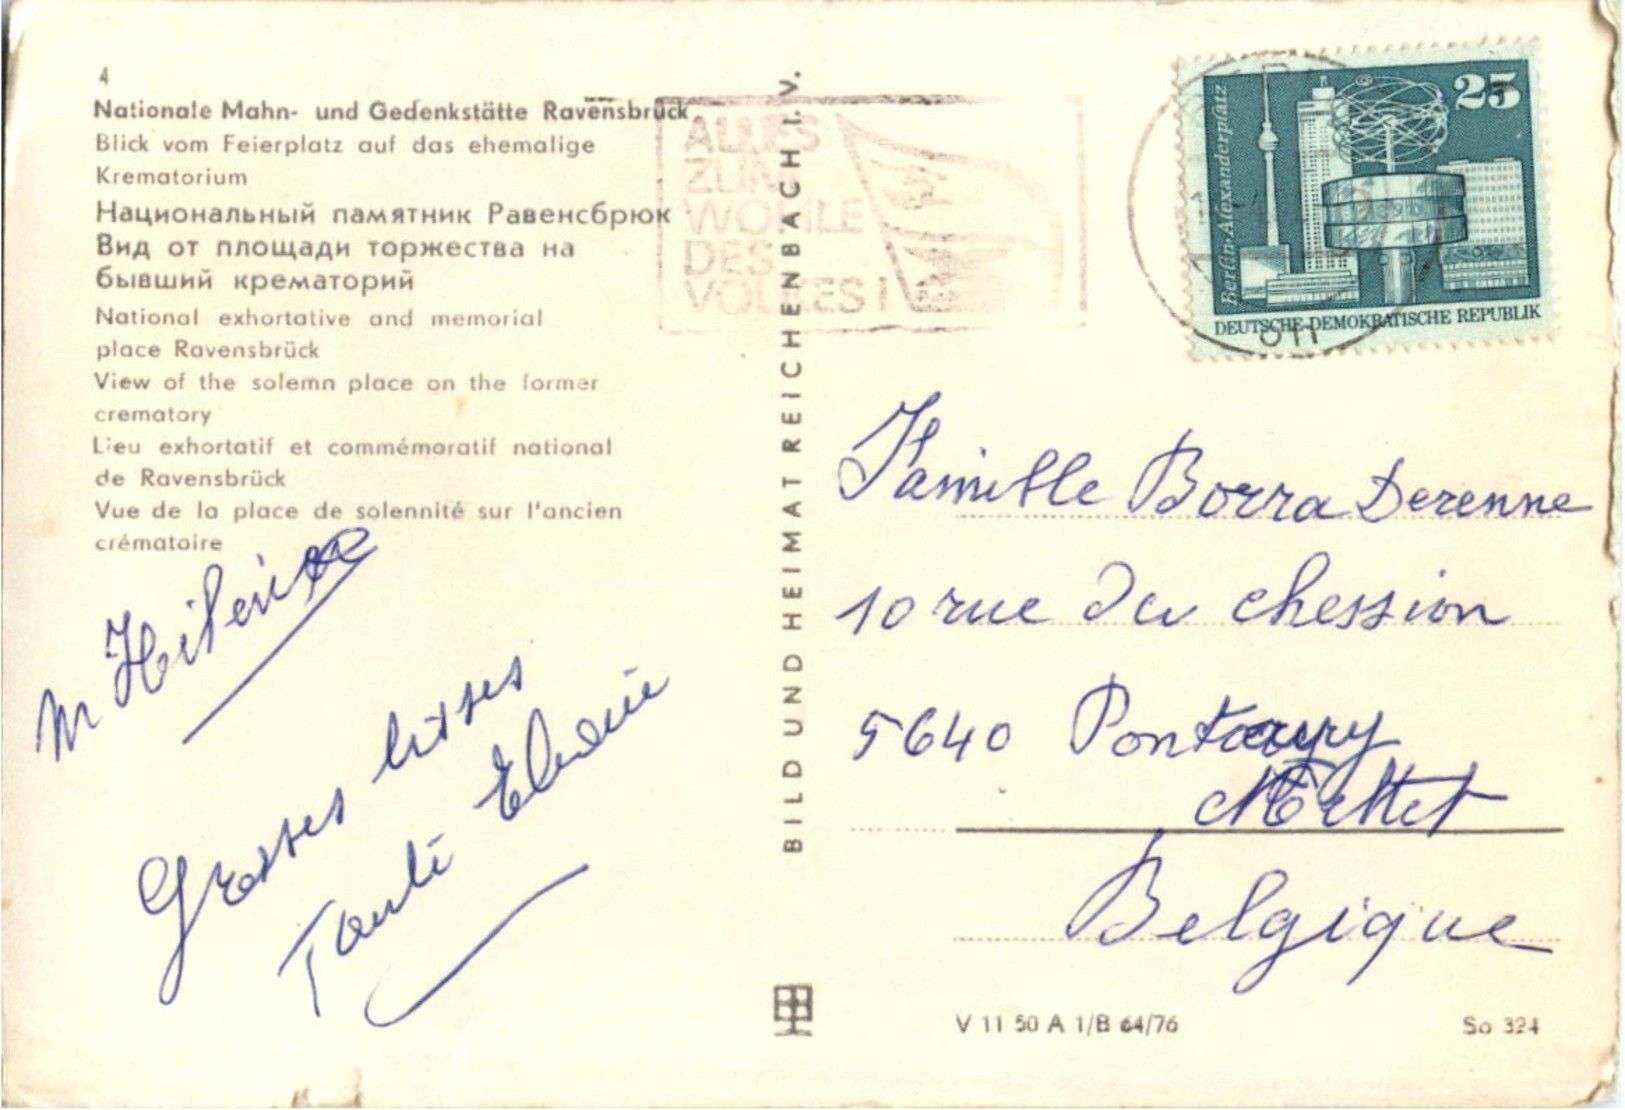 4
Nationale Mahn- und Gedenkstätte Ravensbrück
Blick vom Feierplatz auf das ehemalige
Krematorium
Национальный памятник Равенсбрюк
Вид от площади торжества на
бывший крематорий
National exhortative and memorial
place Ravensbrück
View of the solemn place on the former
crematory
Lieu exhortatif et commémoratif national
de Ravensbrück
Vue de la place de solennité sur l'ancien
crématoire
Grosses bises
BILD UND HEIMAT REICHENBACH I. V.
ALLES
ZUM
WOHLE
DES
VOLKES!
25
Berlin-Alexanderplatz
DEUTSCHE DEMOKRATISCHE REPUBLIK
Famille Borra Derenne
10 rue du chession
5640 Pontaury
Mettet
Belgique
V 11 50 A 1/B 64/76
So 324